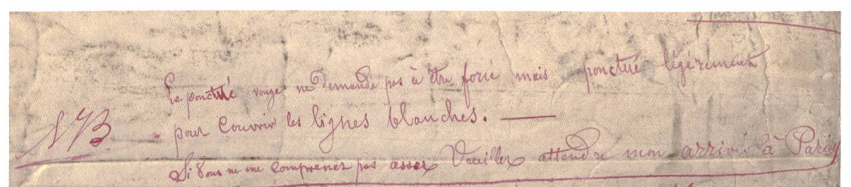 NB Le ponctué rouge ne demande pas à être forcé mais ponctué légèrement
pour couvrir les lignes blanches. —
Si vous ne me comprenez pas assez Veuillez attendre mon arrivée à Paris